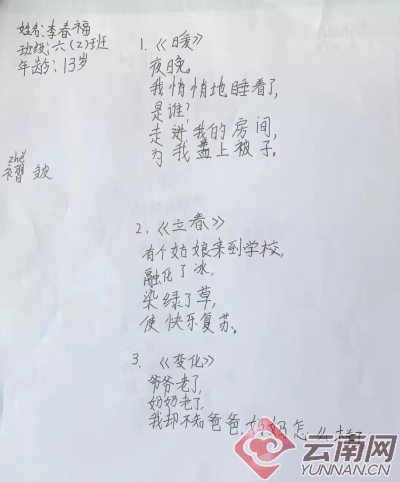 姓名:李春福
班级:六(2)班
年龄:13岁
zhě
褶皱
1.《暖》
夜晚。
我悄悄地睡着了,
是谁?
走进我的房间,
为我盖上被子。
2.《立春》
有个姑娘来到学校,
融化了冰,
染绿了草,
使快乐复苏。
3.《变化》
爷爷老了,
奶奶老了,
我却不知爸爸,妈妈怎
云南网
YUNNAN.CN